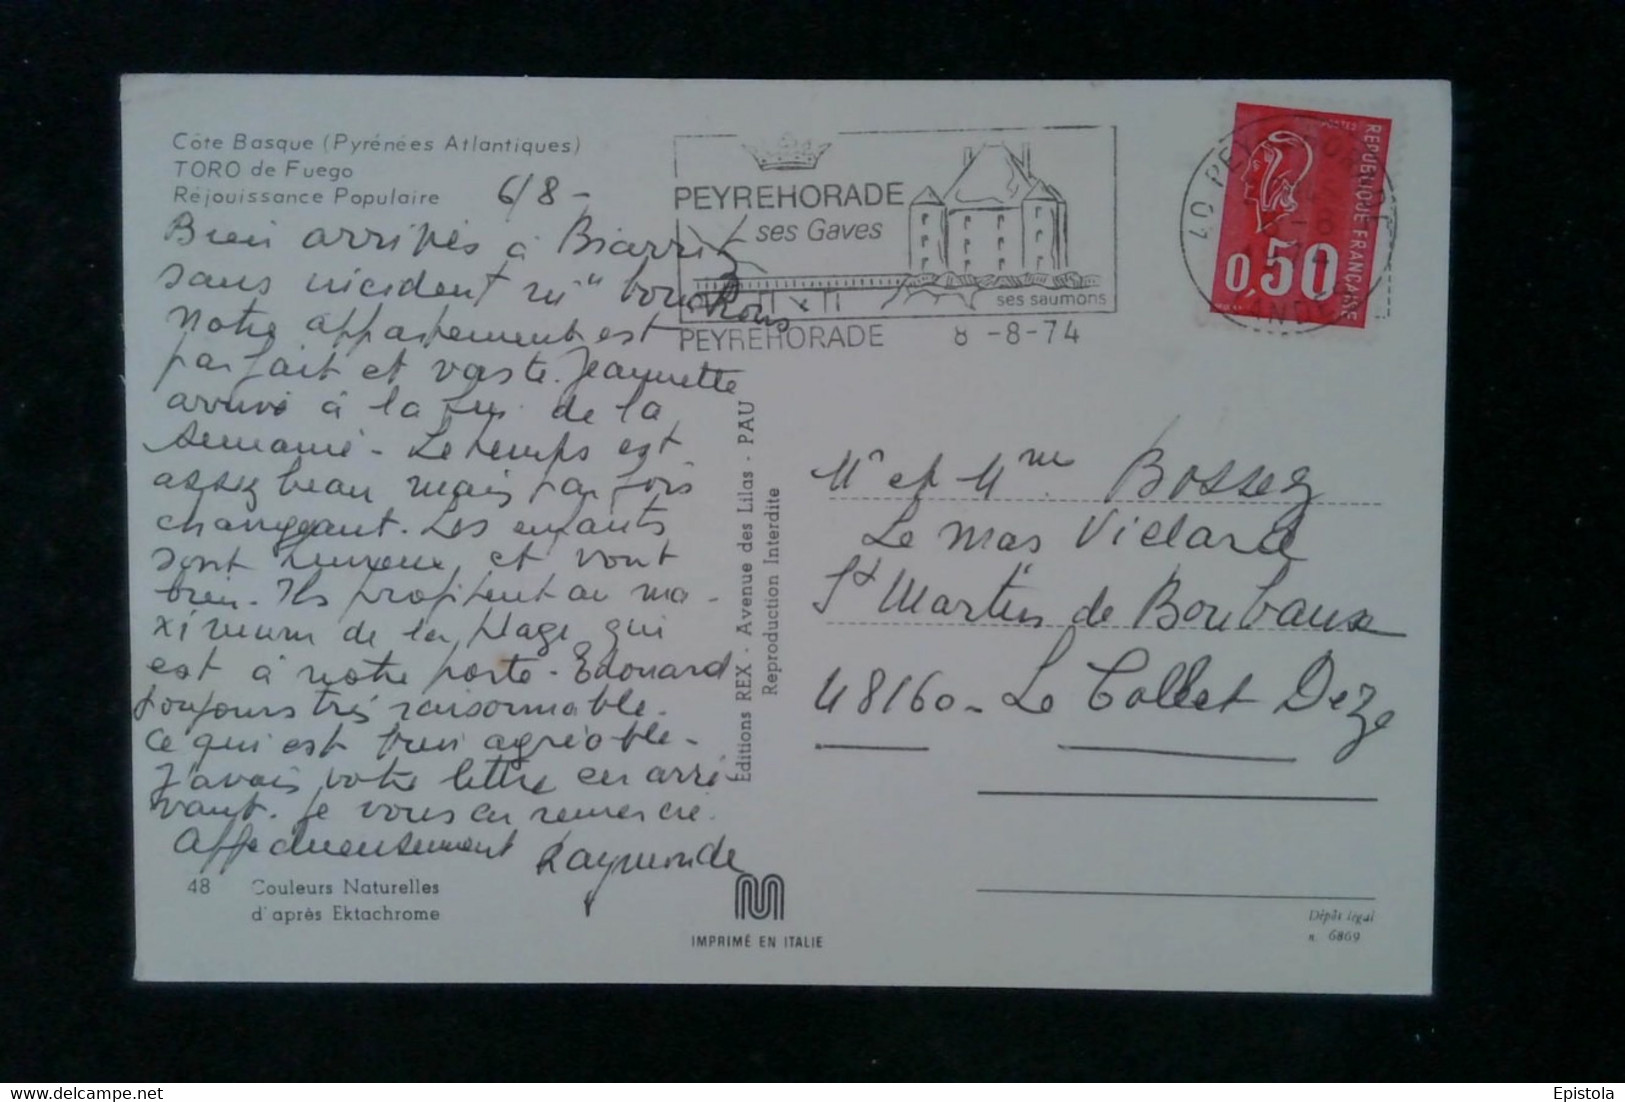 Côte Basque (Pyrénées Atlantiques)
TORO de Fuego
Réjouissance Populaire
6/8 -
Bien arrivés à Biarritz
sans incident ni "bouchons"
Notre appartement est
parfait et vaste. Jeannette
arrive à la fin de la
semaine - Le temps est
assez beau mais parfois
changeant. Les enfants
sont heureux et vont
bien. Ils profitent au ma-
ximum de la plage qui
est à notre porte - Edouard
toujours très raisonnable
ce qui est bien agréable -
J'avais votre lettre en arri-
vant. Je vous en remercie.
Affectueusement Raymonde
48 Couleurs Naturelles
d'après Ektachrome
Editions REX - Avenue des Lilas - PAU
Reproduction Interdite
IMPRIMÉ EN ITALIE
PEYREHORADE
ses Gaves
ses saumons
PEYREHORADE 8 -8-74
POSTES
REPUBLIQUE FRANÇAISE
0,50
Mr et Mme Bossez
Le Mas Viclard
St Martin de Boubaux
48160 - Le Collet Deze
Dépôt légal
n. 6869
Epistola